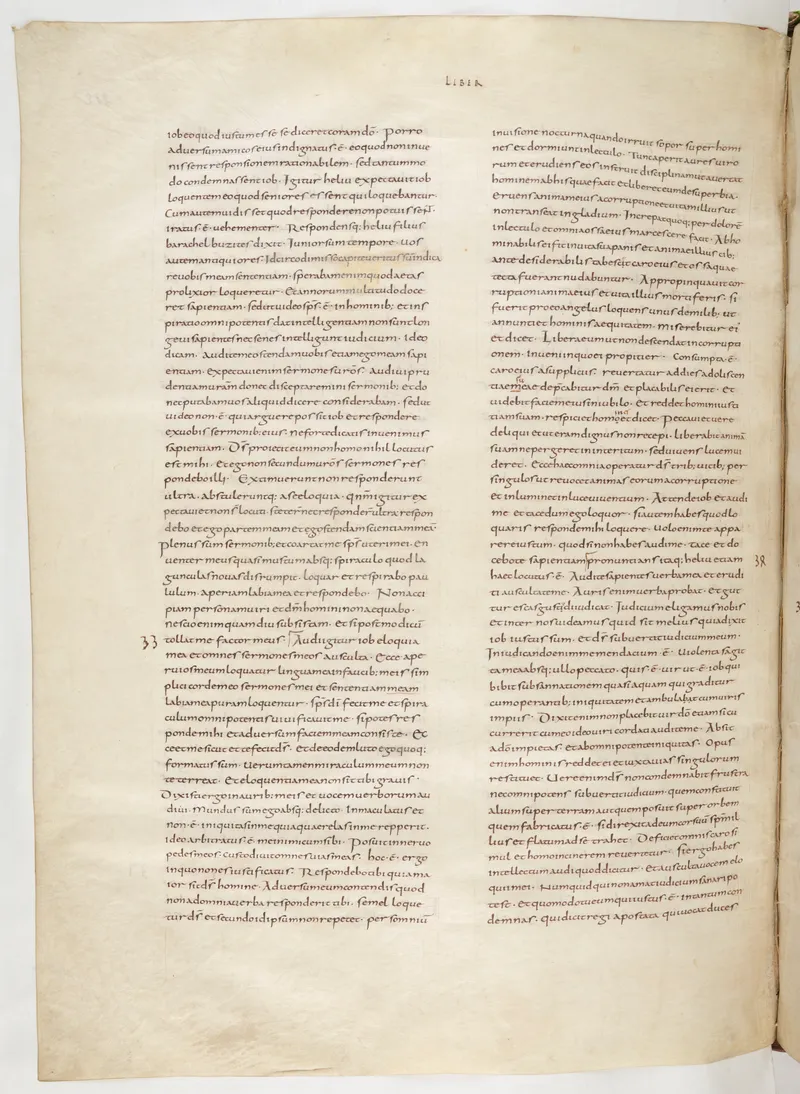 LIBER
iob eo quod iustum esse se diceret coram dō. Porro
aduersum amicos eius indignatus ē. eo quod non inue
nissent responsionem rationabilem. sed tantummo
do condemnassent iob. Igitur heliu expectauit iob
loquentem eo quod seniores essent qui loquebantur.
Cum autem uidisset quod respondere non potuissent.
iratus ē. uehementer. Respondensq; heliu filius
barachel buzites dixit. Iunior sum tempore. uos
autem antiquiores. Idcirco dimisso capite ueritus sum indica
re uobis meam sententiam. sperabam enim quod aetas
prolixior loqueretur. Et annorum multitudo doce
ret sapientiam. sed ut uideo sp̄s. ē. in hominib; et ins
piratio omnipotentis dat intellegentiam non sunt lon
geui sapientes nec senes intellegunt iudicium. Ideo
dicam. Audite me ostendam uobis etiam ego meam sapi
entiam. Expectaui enim sermones urōs. Audiui pru
dentiam uram donec disceptaremini sermonib; et do
nec putabam uos aliquid dicere considerabam. sed ut
uideo non. ē. qui arguere possit iob et respondere
ex uobis sermonib; eius. ne forte dicatis inuenimus
sapientiam. Ds̄ proiecit eum non homo nihil locutus
est mihi. et ego non secundum uros̄ sermones res
pondebo illi. Extimuerunt non responderunt
ultra. Abstuleruntq; a se eloquia. qnm̄ igitur ex
pectaui et non s̄ locuti. steter̄ nec responder̄ ultra respon
debo et ego partem meam et ego stendam scientiam meā.
Plenus sum sermonib; et coartat me sp̄s uteri mei. en
uenter meus quasi mustum absq; spiraculo quod la
gunculas nouas disrumpit. loquar et respirabo pau
lulum. aperiam labia mea et respondebo. Non acci
piam personam uiri et dm̄ homini non aequabo.
nescio enim quamdiu subsistam. et si post modicū
33 tollat me factor meus. Audi igitur iob eloquia
mea et omnes sermones meos ausculta. Ecce ape
rui os meum loquatur lingua mea in faucib; meis sim
plici corde meo sermones mei et sententiam meam
labia mea puram loquentur. sp̄s dī fecit me et spira
culum omnipotentis uiuificauit me. si potes res
ponde mihi et aduersum faciem meam consiste. Ec
ce et me sicut et te fecit ds̄. et de eodem luto ego quoq;
formatus sum. Uerumtamen miraculum meum non
te terreat. et eloquentia mea non sit tibi grauis.
Dixisti ergo in aurib; meis et uocem uerborum au
diui. Mundus sum ego absq; delicto. Inmaculatus et
non. ē. iniquitas in me quia querelas in me repperit.
ideo arbitratus. ē. me inimicum sibi. Posuit in neruo
pedes meos. custodiuit omnes uias meas. hoc. ē. ergo
in quo non es iustificatus. Respondebo tibi quia ma
ior sit ds̄ homine. Aduersum eum contendis quod
non ad omnia uerba responderit tibi. semel loque
tur ds̄ et secundo id ipsum non repetet. per somniū
in uisione nocturna quando irruit sopor super homi
nes et dormiunt in lectulo. Tunc aperit aures uiro
rum et erudiens eos instruit disciplina mut auertat
hominem ab his quae facit et liberet eum de superbia.
eruens animam eius a corruptione et uitam illius ut
non transeat in gladium. Increpat quoq; per dolorē
in lectulo et omnia ossa eius marcescere facit. Abho
minabilis ei fit in uita sua panis et animae illius cib;
ante desiderabilis tabescit caro eius et ossa quae
tecta fuerant nudabuntur. Appropinquauit cor
ruptioni anima eius et uita illius mortiferis. si
fuerit pro eo angelus loquens unus de milib; ut
annuntiet hominis aequitatem. miserebitur eī
et dicet. Libera eum ut non descendat in corrupti
onem. inueni in quo ei propitier. Consumpta. ē.
caro eius a suppliciis. reuertatur ad dies adolescen
tiae suae deprecabitur dm̄ et placabilis ei erit. et
uidebit faciem eius in iubilo. et reddet homini iusti
tiam suam. respiciet homines et dicet. Peccaui et uere
deliqui et ut eram dignus non recepi. liberabit animā
suam ne pergeret in interitum. sed uiuens lucem ui
deret. Ecce haec omnia operatur ds̄ trib; uicib; per
singulos ut reuocet animas eorum a corruptione
et inluminet in luce uiuentium. Attende iob et audi
me et tace dum ego loquor. si autem habes quod lo
quaris responde mihi loquere. uolo enim te appa
rere iustum. quod si non habes audime. tace et do
cebo te sapientiam pronuntians itaq; heliu etiam 34
haec locutus. ē. Audite sapientes uerba mea et erudi
ti auscultate me. Auris enim uerba probat. et gut
tur escas gustu diiudicat. Iudicium eligamus nobis
et inter nos uideamus quid sit melius quia dixit
iob iustus sum. et ds̄ subuertit iudicium meum.
In iudicando enim me mendacium. ē. Uiolenta sagit
ta mea absq; ullo peccato. quis. ē. uir ut. ē. iob qui
bibit subsannationem quasi aquam qui graditur
cum operantib; iniquitatem et ambulat cum uiris
impiis. Dixit enim non placebit uir dō etiam si cu
currerit cum eo ideo uiri cordati audite me. Absit
a dō impietas et ab omnipotente iniquitas. Opus
enim hominis reddet ei et iuxta uias singulorum
restituet. Uere enim ds̄ non condemnabit frustra
nec omnipotens subuertit iudicium. quem constituit
alium super terram aut quem posuit super orbem
quem fabricatus. ē. si direxerit ad eum cor suū spm̄ il
lius et flatum ad se trahet. Deficiet omnis caro si
mul et homo in cinerem reuertetur. si ergo habes
intellectum audi quod dicitur. et ausculta uocem elo
quii mei. Numquid qui non amat iudicium sanari po
test. et quomodo tu eum qui iustus. ē. in tantum con
demnas. qui dicit regi apostata qui uocat duces